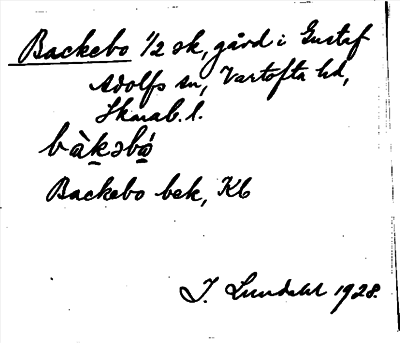 Backebo 1/2 sk, gård i Gustaf
Adolfs sn, Vartofta hd,
Skarab. l.
bàkəbó
Backebo bek, Kb
I. Lundahl 1928.